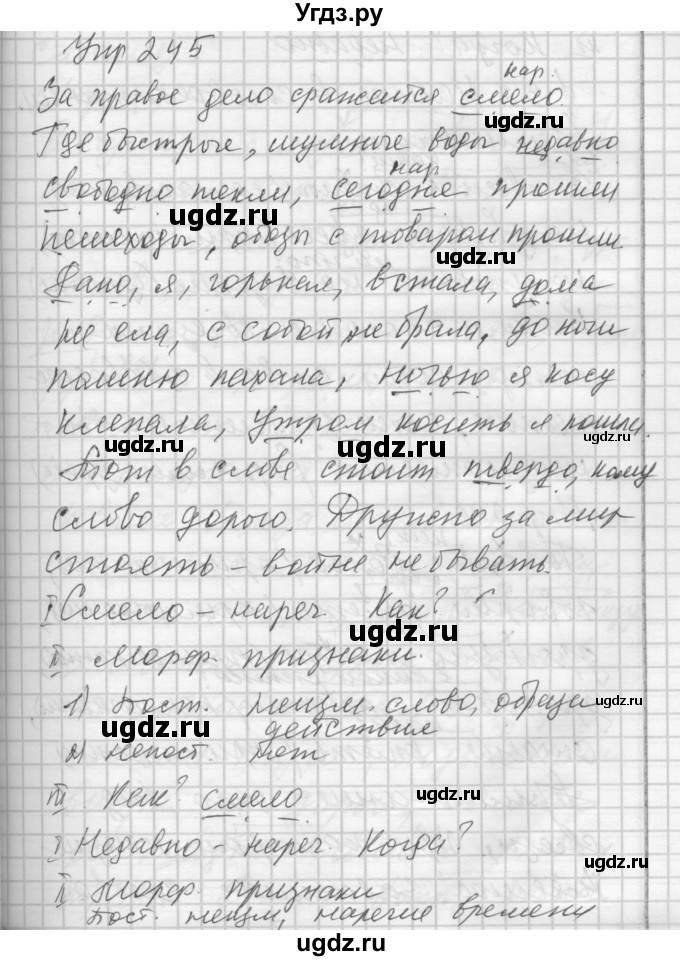 Угдз.ру
Упр 245
нар.
За правое дело сражается смело.
Где быстрые, шумные воды недавно
нар
свободно текли, сегодня прошли
пешеходы, обозы с товаром прошли.
Рано, я, горькая, встала, дома
не ела, с собой не брала, до ночи
пашню пахала, ночью я косу
клепала, утром косить я пошла.
Тот в слове стоит твердо, кому
слово дорого. Дружно за мир
стоять – войне не бывать.
I Смело – нареч. Как?
II Морф. признаки.
1) Пост. неизм. слово, образа
действия
2) непост.
III Как? смело
I Недавно – нареч. Когда?
II Морф. признаки
Пост. неизм, наречие времени
ugdz.ru
ugdz.ru
ugdz.ru
ugdz.ru
ugdz.ru
ugdz.ru
ugdz.ru
ugdz.ru
ugdz.ru
ugdz.ru
ugdz.ru
ugdz.ru
ugdz.ru
ugdz.ru